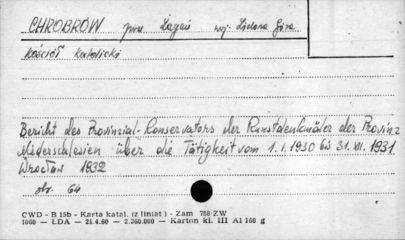 CHROBRÓW pow. Żagań woj. Zielona Góra
Kościół katolicki
Bericht des Provinzial-Konservators der Kunstdenkmäler der Provinz
Niederschlesien über die Tätigkeit vom 1.I.1930 bis 31.XII.1931.
Wrocław 1932
str. 64
CWD - B 15b - Karta katal. (z liniat) - Zam 788 ZW
1060 — LDA — 21.4.60 — 2.260.000 — Karton kl. III A1 160 g